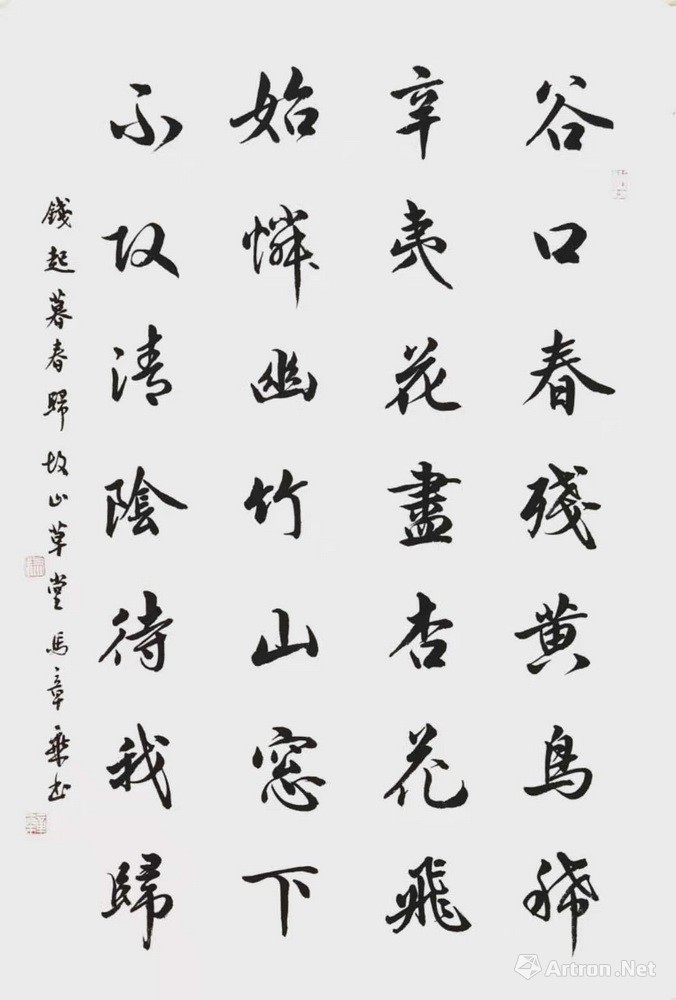 谷口春殘黄鳥稀
辛夷花盡杏花飛
始憐幽竹山窓下
不改清陰待我歸
錢起暮春歸故山草堂 馬章乘书
Artron.Net